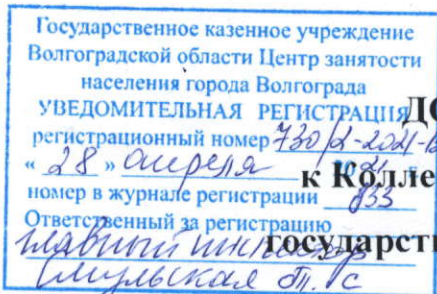 Государственное казенное учреждение
Волгоградской области Центр занятости
населения города Волгограда
УВЕДОМИТЕЛЬНАЯ РЕГИСТРАЦИЯ ДО
регистрационный номер 730/2-2021-В
« 28 » апреля
к Колле
номер в журнале регистрации 833
Ответственный за регистрацию
государст
главный